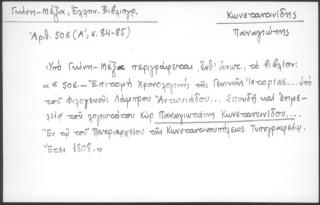 Γκίνη-Μέξα, Ἑλλην. Βιβλιογρ.
Κωνσταντινίδης
Παναγιώτης
Ἀριθ. 506 (Α', σ. 84-85)
«Ὑπὸ Γκίνη-Μέξα περιγράφεται, ἔνθ' ἄνωτ., τὸ βιβλίον:
« 506.— Ἐπιτομὴ Χρονολογικὴ τῆς Γενικῆς Ἱστορίας.... ὑπὸ
τοῦ Φιλογενοῦς Λάμπρου Ἀντωνιάδου... Σπουδῇ καὶ ἐπιμε-
λείᾳ τοῦ λογιωτάτου Κὺρ Παναγιωτάκη Κωνσταντινίδου...
Ἐν τῷ τοῦ Πατριαρχείου τῆς Κωνσταντινουπόλεως Τυπογραφείῳ.
Ἔτει 1808.»